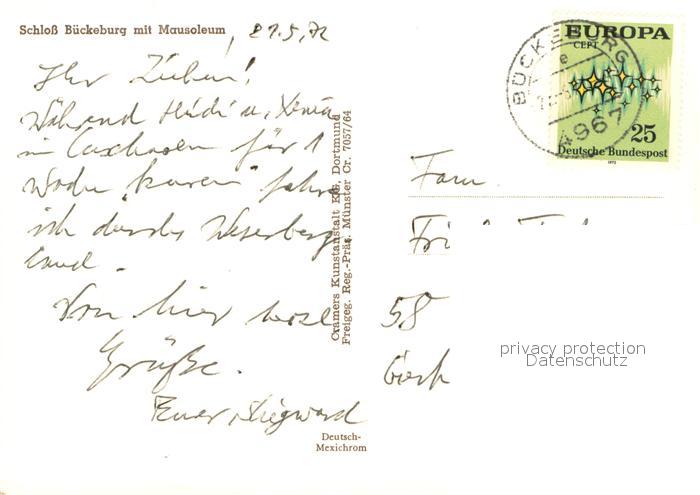 Schloß Bückeburg mit Mausoleum
Ihr Lieben!
Während Heidi u.
in Cuxhaven für 1
Woche "kuren" fahre
ich durchs Weserberg
land.
Von hier herzl.
Grüße.
Euer Siegward
Deutsch-
Mexichrom
Cramers Kunstanstalt KG, Dortmund
Freigeg. Reg.-Präs. Münster Cr. 7057/64
EUROPA
CEPT
25
Deutsche Bundespost
1972
BÜCKEBURG
e
4967
Fam.
58
privacy protection
Datenschutz